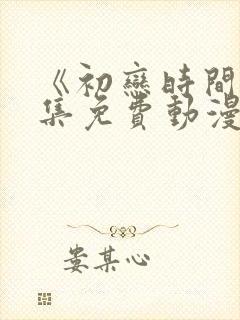 《初戀時間
集免費動漫
婁某心